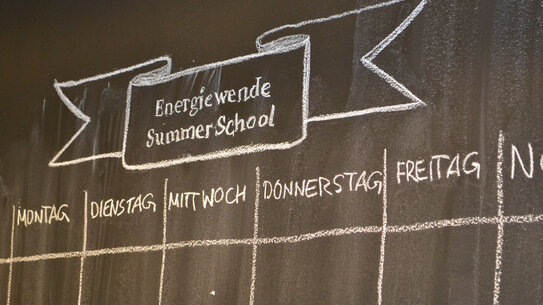 Energiewende
Summer School
MONTAG DIENSTAG MITTWOCH DONNERSTAG FREITAG